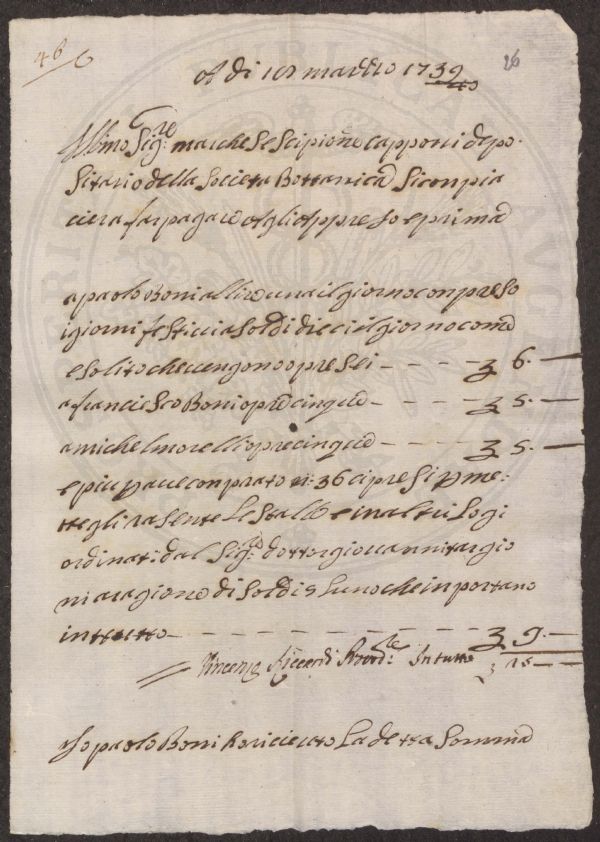 46/6
26
A di 18 marzo 1739
Ill.mo Sig.re marchese Scipione Capponi depo-
sitario della Societa Bottanica Si conpia
ciera far pagare agli Appreso e prima
a paolo Boni a lire una il giorno conpreso
i giorni festivi a Soldi dieci il giorno come
e solito che vengono opre Sei - - - - - £ 6. —
a francieSco Boni opre cinque - - - - £ 5. —
a michel morelli opre cinque - - - - £ 5. —
e piu p ave conprato n: 36 cipresi p me:
ttegli rasente le Stalle e in altri logi
ordinati dal Sig.re dottor giovanni targio
ni a ragione di Soldi 5 luno che inportano
in tutto - - - - - £ 9. —
Vincenzo Riccardi Provd.re In tutto £ 25 —
Io paolo Boni ho ricieuto La detta Somma